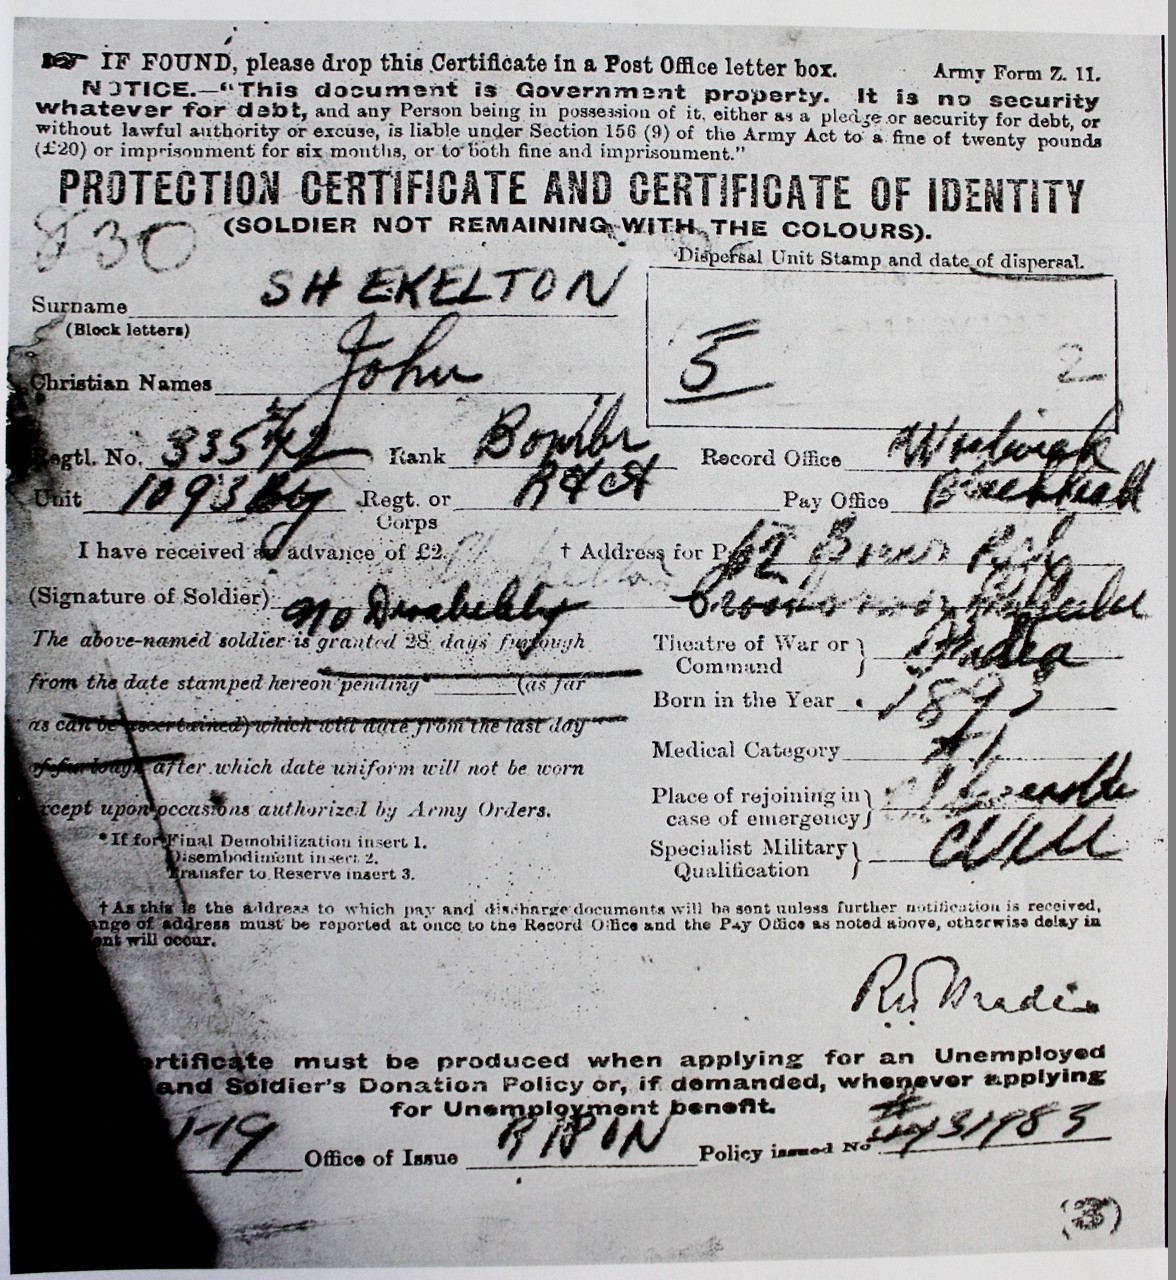 IF FOUND, please drop this Certificate in a Post Office letter box. Army Form Z. 11.
NOTICE.—"This document is Government property. It is no security
whatever for debt, and any Person being in possession of it, either as a pledge or security for debt, or
without lawful authority or excuse, is liable under Section 156 (9) of the Army Act to a fine of twenty pounds
(£20) or imprisonment for six months, or to both fine and imprisonment."
PROTECTION CERTIFICATE AND CERTIFICATE OF IDENTITY
(SOLDIER NOT REMAINING WITH THE COLOURS).
830
Dispersal Unit Stamp and date of dispersal.
Surname SHEKELTON
(Block letters)
5 2
Christian Names John
Regtl. No. 33542 Rank Bombr Record Office Woolwich
Unit 1093 Bty Regt. or Corps Pay Office
I have received an advance of £2. † Address for Pay 62
(Signature of Soldier) No Disability
The above-named soldier is granted 28 days furlough
Theatre of War or Command India
from the date stamped hereon pending (as far
Born in the Year 1893
as can be ascertained) which will date from the last day
Medical Category A1
of furlough after which date uniform will not be worn
Place of rejoining in case of emergency
except upon occasions authorized by Army Orders.
* If for Final Demobilization insert 1.
Disembodiment insert 2.
Transfer to Reserve insert 3.
Specialist Military Qualification
† As this is the address to which pay and discharge documents will be sent unless further notification is received,
ange of address must be reported at once to the Record Office and the Pay Office as noted above, otherwise delay in
ent will occur.
ertificate must be produced when applying for an Unemployed
and Soldier's Donation Policy or, if demanded, whenever applying
for Unemployment benefit.
1-19 Office of Issue RIPON Policy issued No
(3)